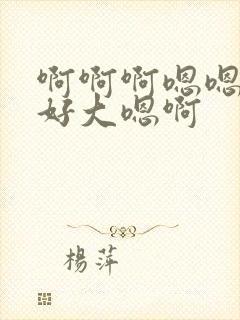 啊啊啊嗯嗯
好大嗯啊
楊萍